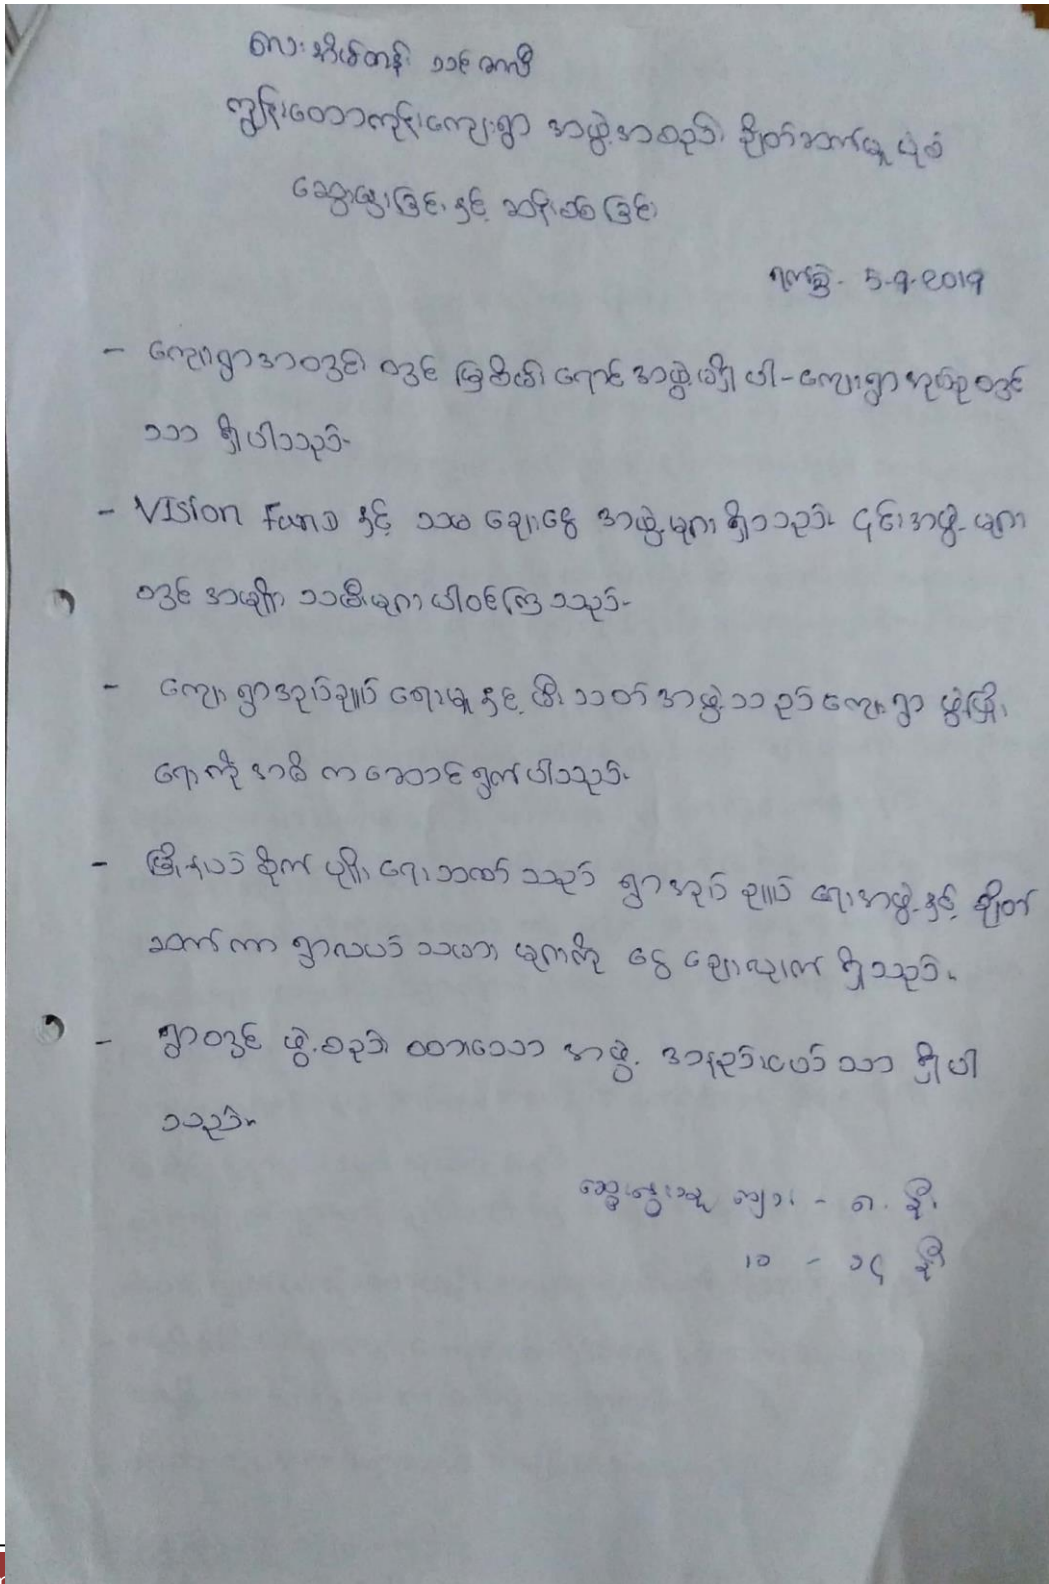 လေးအိမ်တန်း သင်္ဘောလိပ်
ကျွန်းတောကုန်းကျေးရွာ အဖွဲ့အစည်း ချိတ်ဆက်မှု ပုံစံ
ဆွေးနွေးခြင်း နှင့် ဆန်းစစ်ခြင်း
ရက်စွဲ - 5-9-2019
- ကျေးရွာအတွင်း တွင် မြစိမ်းရောင် အဖွဲ့မရှိပါ - ကျေးရွာအုပ်စုတွင်
သာ ရှိပါသည်။
- Vision Fund နှင့် သမချေးငွေ အဖွဲ့များ ရှိသည်။ ၎င်းအဖွဲ့များ
တွင် အမျိုးသမီးများ ပါဝင်ကြသည်။
- ကျေးရွာအုပ်ချုပ်ရေးမှူး နှင့် မီးသတ်အဖွဲ့သည် ကျေးရွာ ဖွံ့ဖြိုး
ရေးကို အဓိက ဆောင်ရွက်ပါသည်။
- မြို့နယ် စိုက်ပျိုးရေးဘဏ် သည် ရွာအုပ်ချုပ်ရေးအဖွဲ့ နှင့် ချိတ်
ဆက်ကာ ရွာလယ်သမား များကို ငွေချေးလျက် ရှိသည်။
- ရွာတွင် ဖွဲ့စည်း ထားသော အဖွဲ့ အနည်းငယ်သာ ရှိပါ
သည်။
ဆွေးနွေးသူ ကျား - ၈ ဦး
မ - ၁၄ ဦး